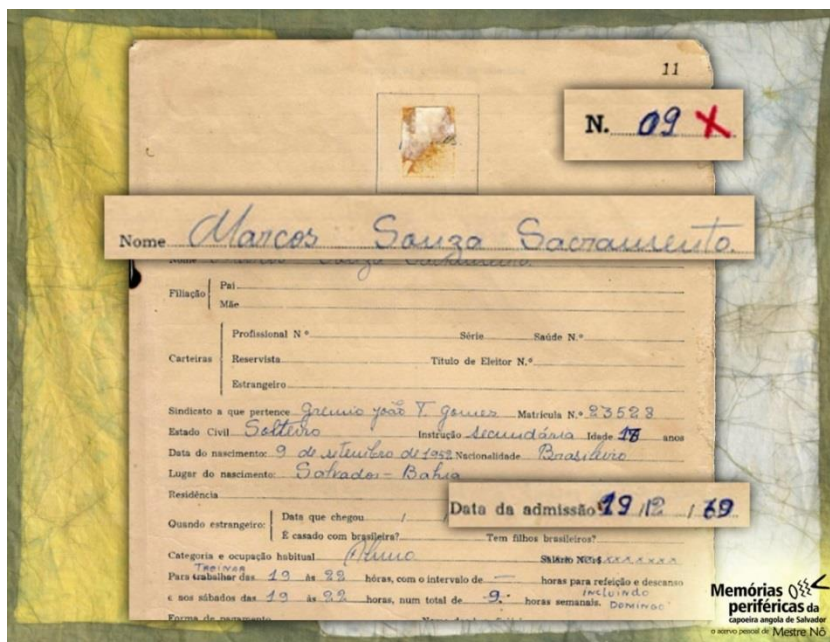 11
N. 09 X
Nome Marcos Souza Sacramento.
Filiação
Pai
Mãe
Carteiras
Profissional N.º Série Saúde N.º
Reservista Titulo de Eleitor N.º
Estrangeiro
Sindicato a que pertence Gremio João T. Gomes Matricula N.º 23528
Estado Civil Solteiro Instrução secundária Idade 18 anos
Data do nascimento: 9 de setembro de 1952 Nacionalidade Brasileiro
Lugar do nascimento: Salvador - Bahia
Residência
Data da admissão 19/12/69
Quando estrangeiro:
Data que chegou / /
É casado com brasileira? Tem filhos brasileiros?
Categoria e ocupação habitual Aluno
TREINAR
Para trabalhar das 19 às 22 horas, com o intervalo de — horas para refeição e descanso
INCLUINDO
e aos sábados das 19 às 22 horas, num total de -9- horas semanais. DOMINGO
Forma de pagamento
Memórias
periféricas da
capoeira angola de Salvador
o acervo pessoal de Mestre Nô